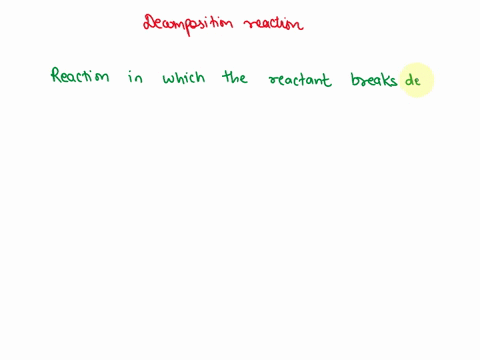 Decomposition reaction
Reaction in which the reactant breaks de